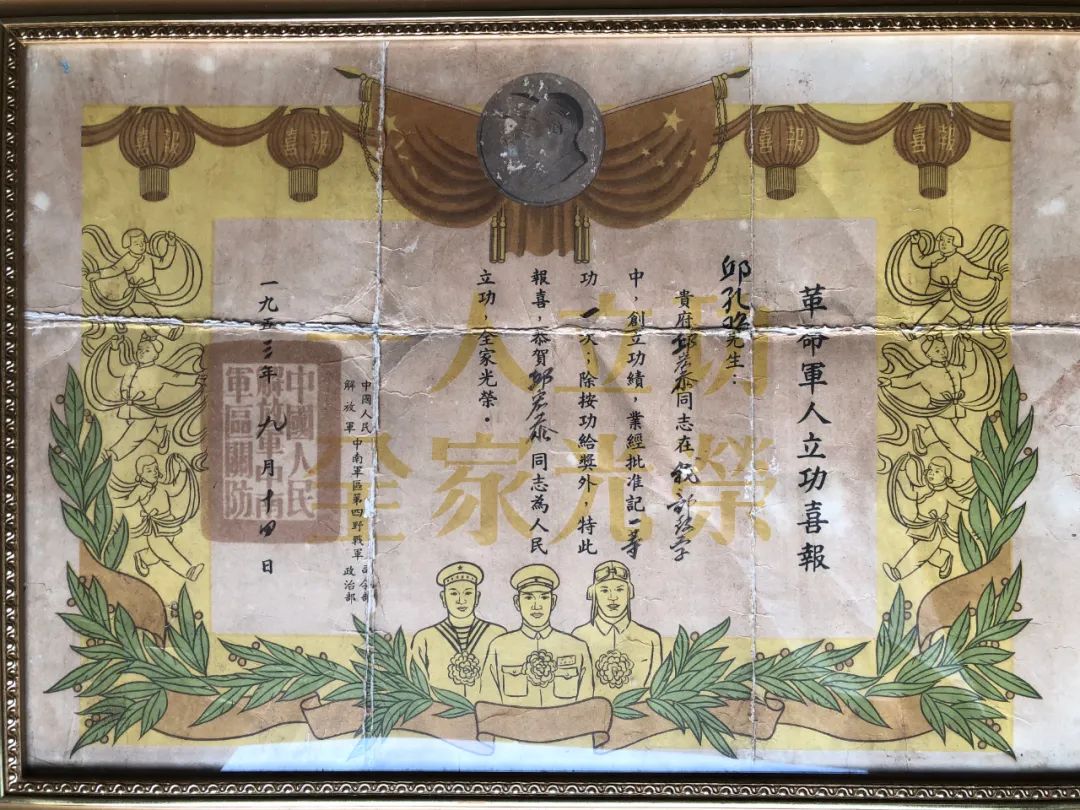 喜報
喜報
喜報
喜報
革命軍人立功喜報
邱孔先生：
貴府邱同志在
中，創立功績，業經批准記一等
功一次；除按功給獎外，特此
報喜，恭賀邱同志為人民
立功，全家光榮。
中國人民
解放軍
中南軍區第四野戰軍
司令部
政治部
一九五三年九月十四日
一人立功
全家光榮
中國人民
解放軍中南
軍區關防